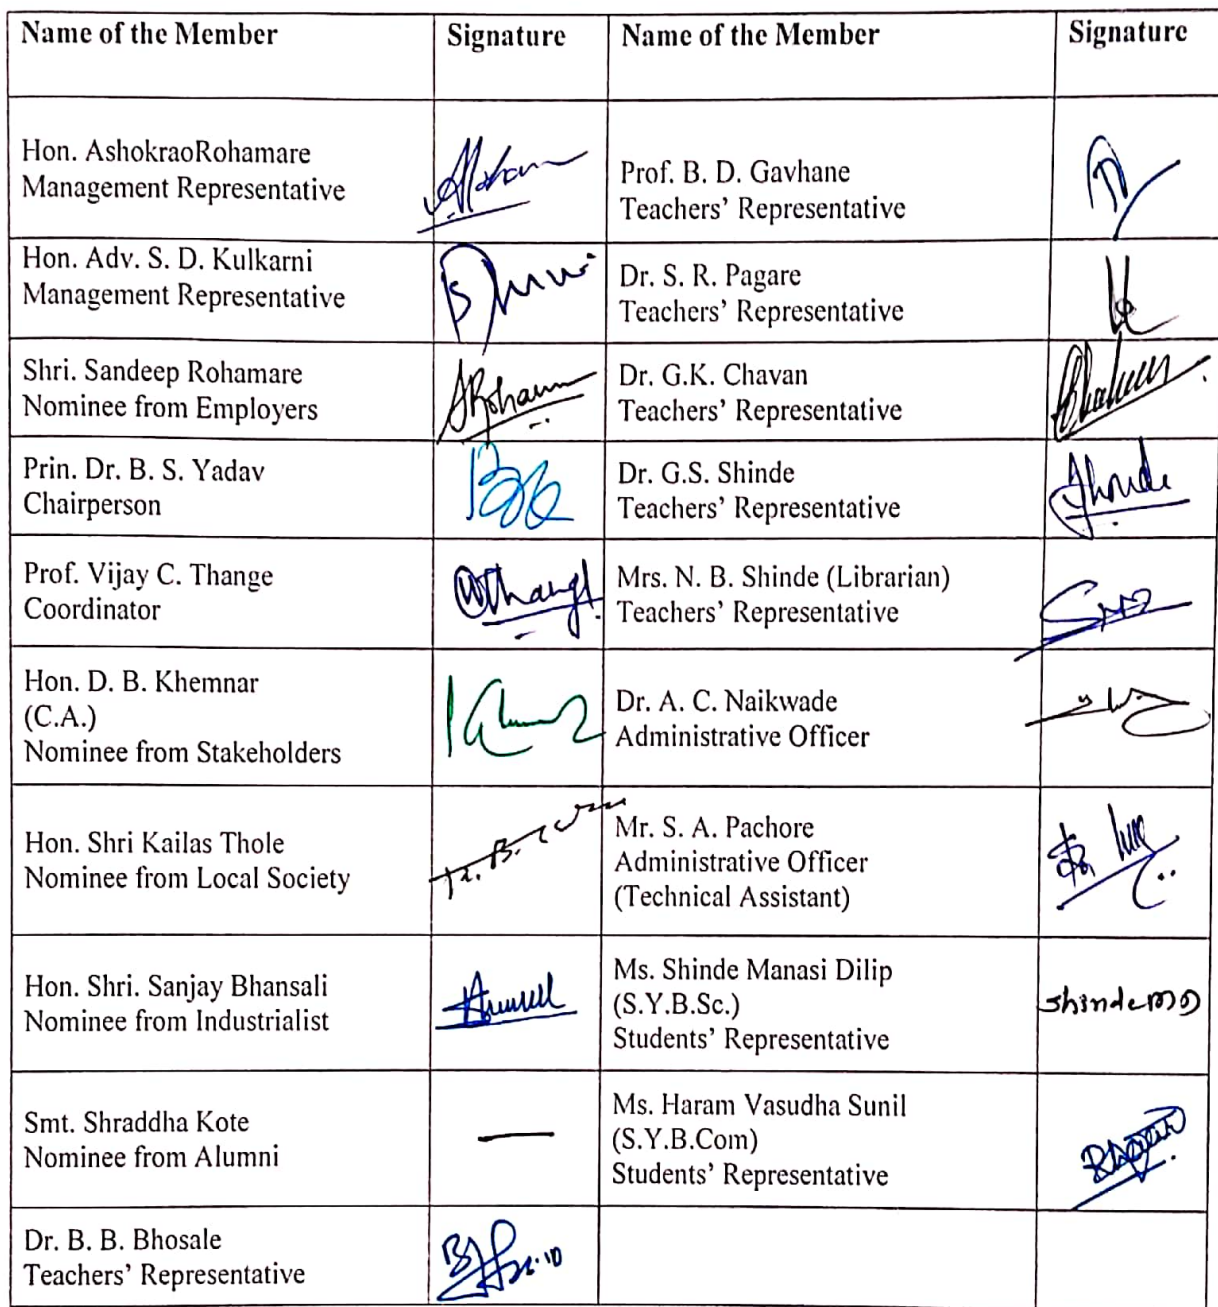 Name of the Member Signature Name of the Member Signature
Hon. AshokraoRohamare
Management Representative
Prof. B. D. Gavhane
Teachers' Representative
Hon. Adv. S. D. Kulkarni
Management Representative
Dr. S. R. Pagare
Teachers' Representative
Shri. Sandeep Rohamare
Nominee from Employers
Dr. G.K. Chavan
Teachers' Representative
Prin. Dr. B. S. Yadav
Chairperson
Dr. G.S. Shinde
Teachers' Representative
Prof. Vijay C. Thange
Coordinator
Mrs. N. B. Shinde (Librarian)
Teachers' Representative
Hon. D. B. Khemnar
(C.A.)
Nominee from Stakeholders
Dr. A. C. Naikwade
Administrative Officer
Hon. Shri Kailas Thole
Nominee from Local Society
Mr. S. A. Pachore
Administrative Officer
(Technical Assistant)
Hon. Shri. Sanjay Bhansali
Nominee from Industrialist
Ms. Shinde Manasi Dilip
(S.Y.B.Sc.)
Students' Representative
Smt. Shraddha Kote
Nominee from Alumni
—
Ms. Haram Vasudha Sunil
(S.Y.B.Com)
Students' Representative
Dr. B. B. Bhosale
Teachers' Representative